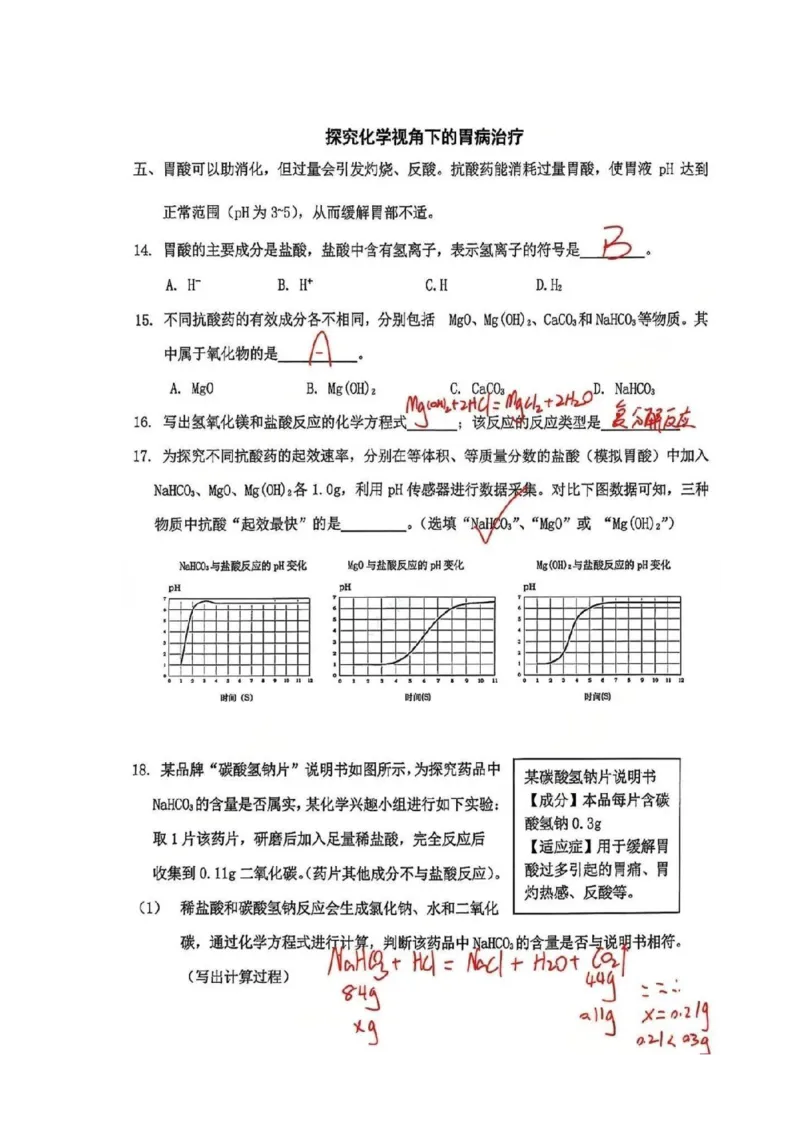 探究化学视角下的胃病治疗
五、胃酸可以助消化，但过量会引发灼烧、反酸。抗酸药能消耗过量胃酸，使胃液 pH 达到
正常范围（pH为3~5），从而缓解胃部不适。
14. 胃酸的主要成分是盐酸，盐酸中含有氢离子，表示氢离子的符号是 B 。
A. H⁻ B. H⁺ C.H D.H₂
15. 不同抗酸药的有效成分各不相同，分别包括 MgO、Mg(OH)₂、CaCO₃和NaHCO₃等物质。其
中属于氧化物的是 A 。
A. MgO B. Mg(OH)₂ C. CaCO₃ D. NaHCO₃
Mg(OH)₂+2HCl=MgCl₂+2H₂O
16. 写出氢氧化镁和盐酸反应的化学方程式______；该反应的反应类型是 复分解反应
17. 为探究不同抗酸药的起效速率，分别在等体积、等质量分数的盐酸（模拟胃酸）中加入
NaHCO₃、MgO、Mg(OH)₂各1.0g，利用pH传感器进行数据采集。对比下图数据可知，三种
物质中抗酸“起效最快”的是________。（选填“NaHCO₃”、“MgO”或 “Mg(OH)₂”）
NaHCO₃与盐酸反应的pH变化 MgO与盐酸反应的pH变化 Mg(OH)₂与盐酸反应的pH变化
pH pH pH
7 7 7
6 6 6
5 5 5
4 4 4
3 3 3
2 2 2
1 1 1
0 1 2 3 4 5 6 7 8 9 10 11 12 0 1 2 3 4 5 6 7 8 9 10 11 0 1 2 3 4 5 6 7 8 9 10 11 12
时间（S） 时间(S) 时间(S)
18. 某品牌“碳酸氢钠片”说明书如图所示，为探究药品中
NaHCO₃的含量是否属实，某化学兴趣小组进行如下实验：
取1片该药片，研磨后加入足量稀盐酸，完全反应后
收集到0.11g二氧化碳。（药片其他成分不与盐酸反应）。
某碳酸氢钠片说明书
【成分】本品每片含碳
酸氢钠0.3g
【适应症】用于缓解胃
酸过多引起的胃痛、胃
灼热感、反酸等。
（1） 稀盐酸和碳酸氢钠反应会生成氯化钠、水和二氧化
碳，通过化学方程式进行计算，判断该药品中NaHCO₃的含量是否与说明书相符。
（写出计算过程）
NaHCO₃+HCl=NaCl+H₂O+CO₂↑
84g 44g
xg 0.11g x=0.21g
0.21<0.3g